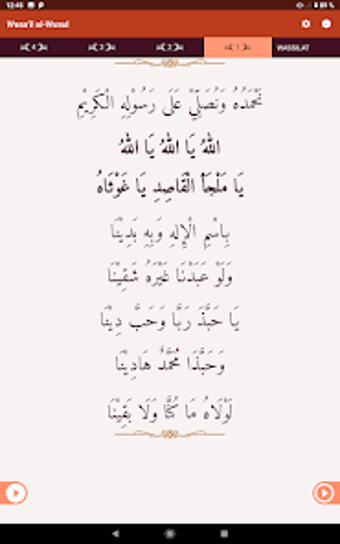 12:46
Wasa'il al-Wusul
WASSILAT
نَحْمَدُهُ وَنُصَلِّيْ عَلَى رَسُوْلِهِ الْكَرِيْمِ
اللهُ يَا اللهُ يَا اللهُ
يَا مَلْجَأَ الْقَاصِدِ يَا غَوْثَاهُ
بِاسْمِ الْإِلهِ وَبِهِ بَدِيْنَا
وَلَوْ عَبَدْنَا غَيْرَهُ شَقِيْنَا
يَا حَبَّذَ رَبًّا وَحَبَّ دِيْنَا
وَحَبَّذَا مُحَمَّدٌ هَادِيْنَا
لَوْلَاهُ مَا كُنَّا وَلَا بَقِيْنَا